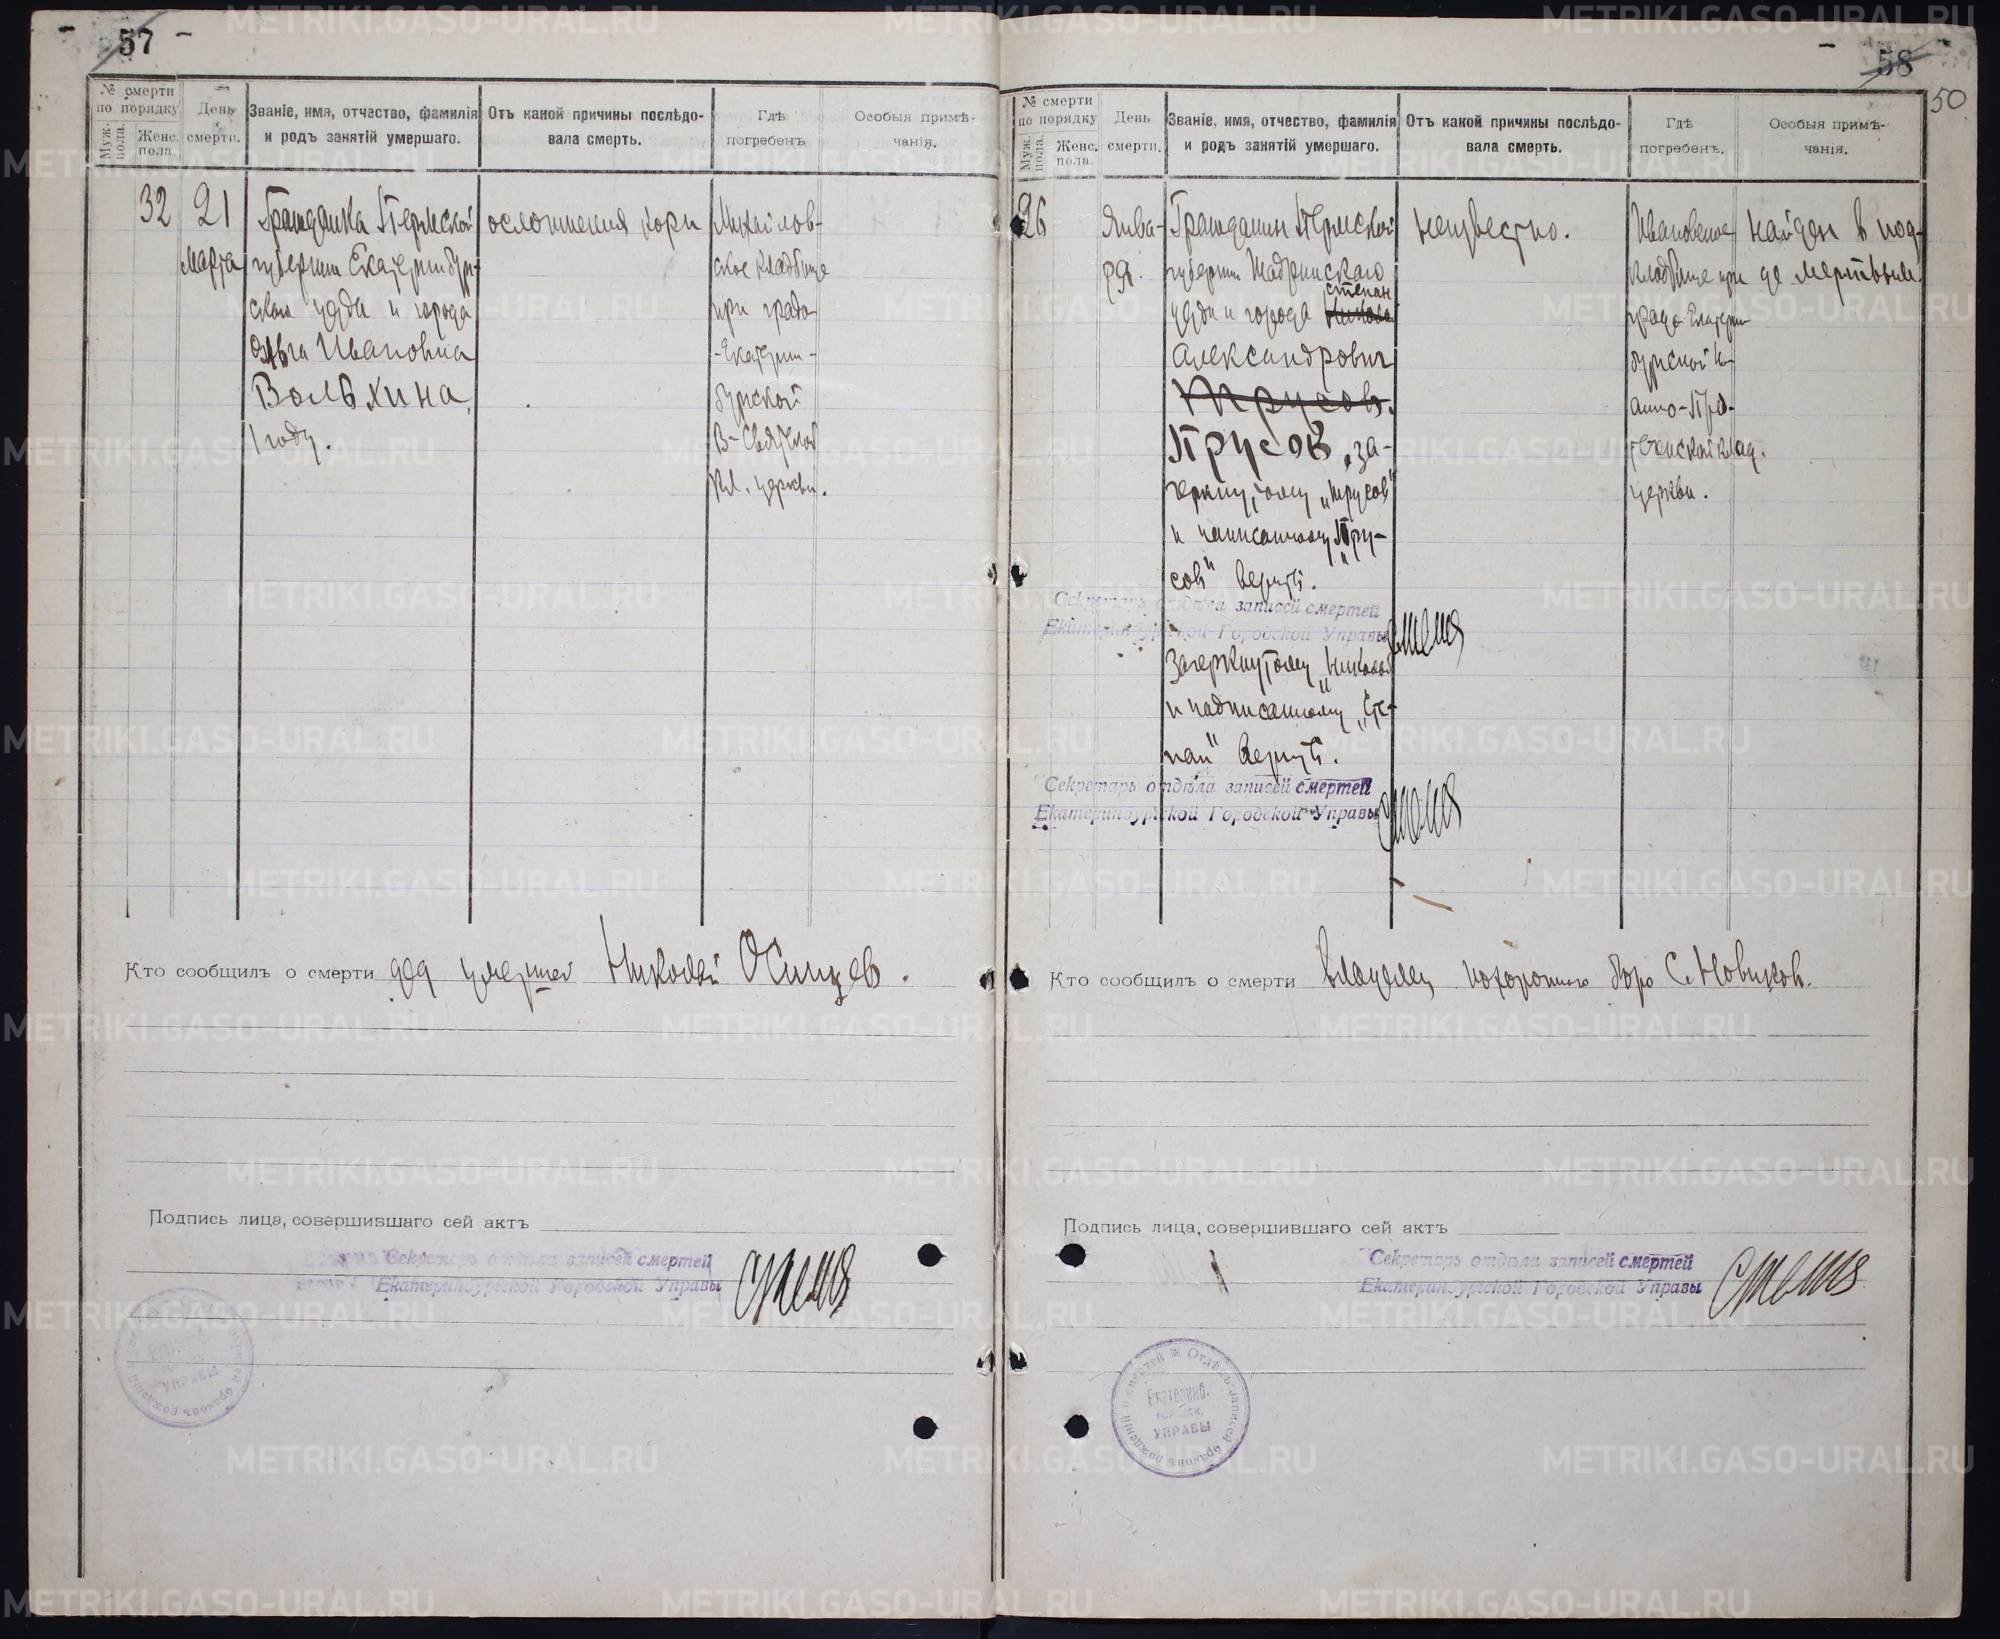 57
№ смерти
по порядку
Муж.
пола.
Женс.
пола.
День
смерти.
Званіе, имя, отчество, фамилія
и родъ занятій умершаго.
Отъ какой причины послѣдо-
вала смерть.
Гдѣ
погребенъ
Особыя примѣ-
чанія.
32
21
Марта
Гражданка Пермской
губернии Екатеринбург-
скаго уезда и города
Ольга Ивановна
Вольхина,
1 году.
осложнения кори
Михайлов-
ское кладбище
при градо
-Екатерин-
бургской
В-Святской
кл. церкви.
Кто сообщилъ о смерти дед умершей Николай Осинцев.
Подпись лица, совершившаго сей актъ
Секретарь отдѣла записей смертей
Екатеринбургской Городской Управы
УПРАВЫ
58
50
№ смерти
по порядку
Муж.
пола.
Женс.
пола.
День
смерти.
Званіе, имя, отчество, фамилія
и родъ занятій умершаго.
Отъ какой причины послѣдо-
вала смерть.
Гдѣ
погребенъ.
Особыя примѣ-
чанія.
26
Янва-
ря.
Гражданин Пермской
губернии Шадринскаго
степан
уезда и города Никола
Александрович
Трусов.
Прусов, за-
черкнутому „Трусов"
и написанному „Пру-
сов" верить.
Секретарь отдѣла записей смертей
Екатеринбургской Городской Управы
Зачеркнутому „Никола"
и надписанному „Сте-
пан" верить.
Секретарь отдѣла записей смертей
Екатеринбургской Городской Управы
неизвестно.
Ивановское
кладбище при
градо-Екатерин-
бургской Ио-
анно-Пред-
теченской клад.
церкви.
Найден в поез-
де мертвым.
Кто сообщилъ о смерти владелец похоронного бюро С. Новиков.
Подпись лица, совершившаго сей актъ
Секретарь отдѣла записей смертей
Екатеринбургской Городской Управы
Отдѣлъ записей браковъ рожденій и смертей
Екатеринб.
городск.
УПРАВЫ
METRIKI.GASO-URAL.RU